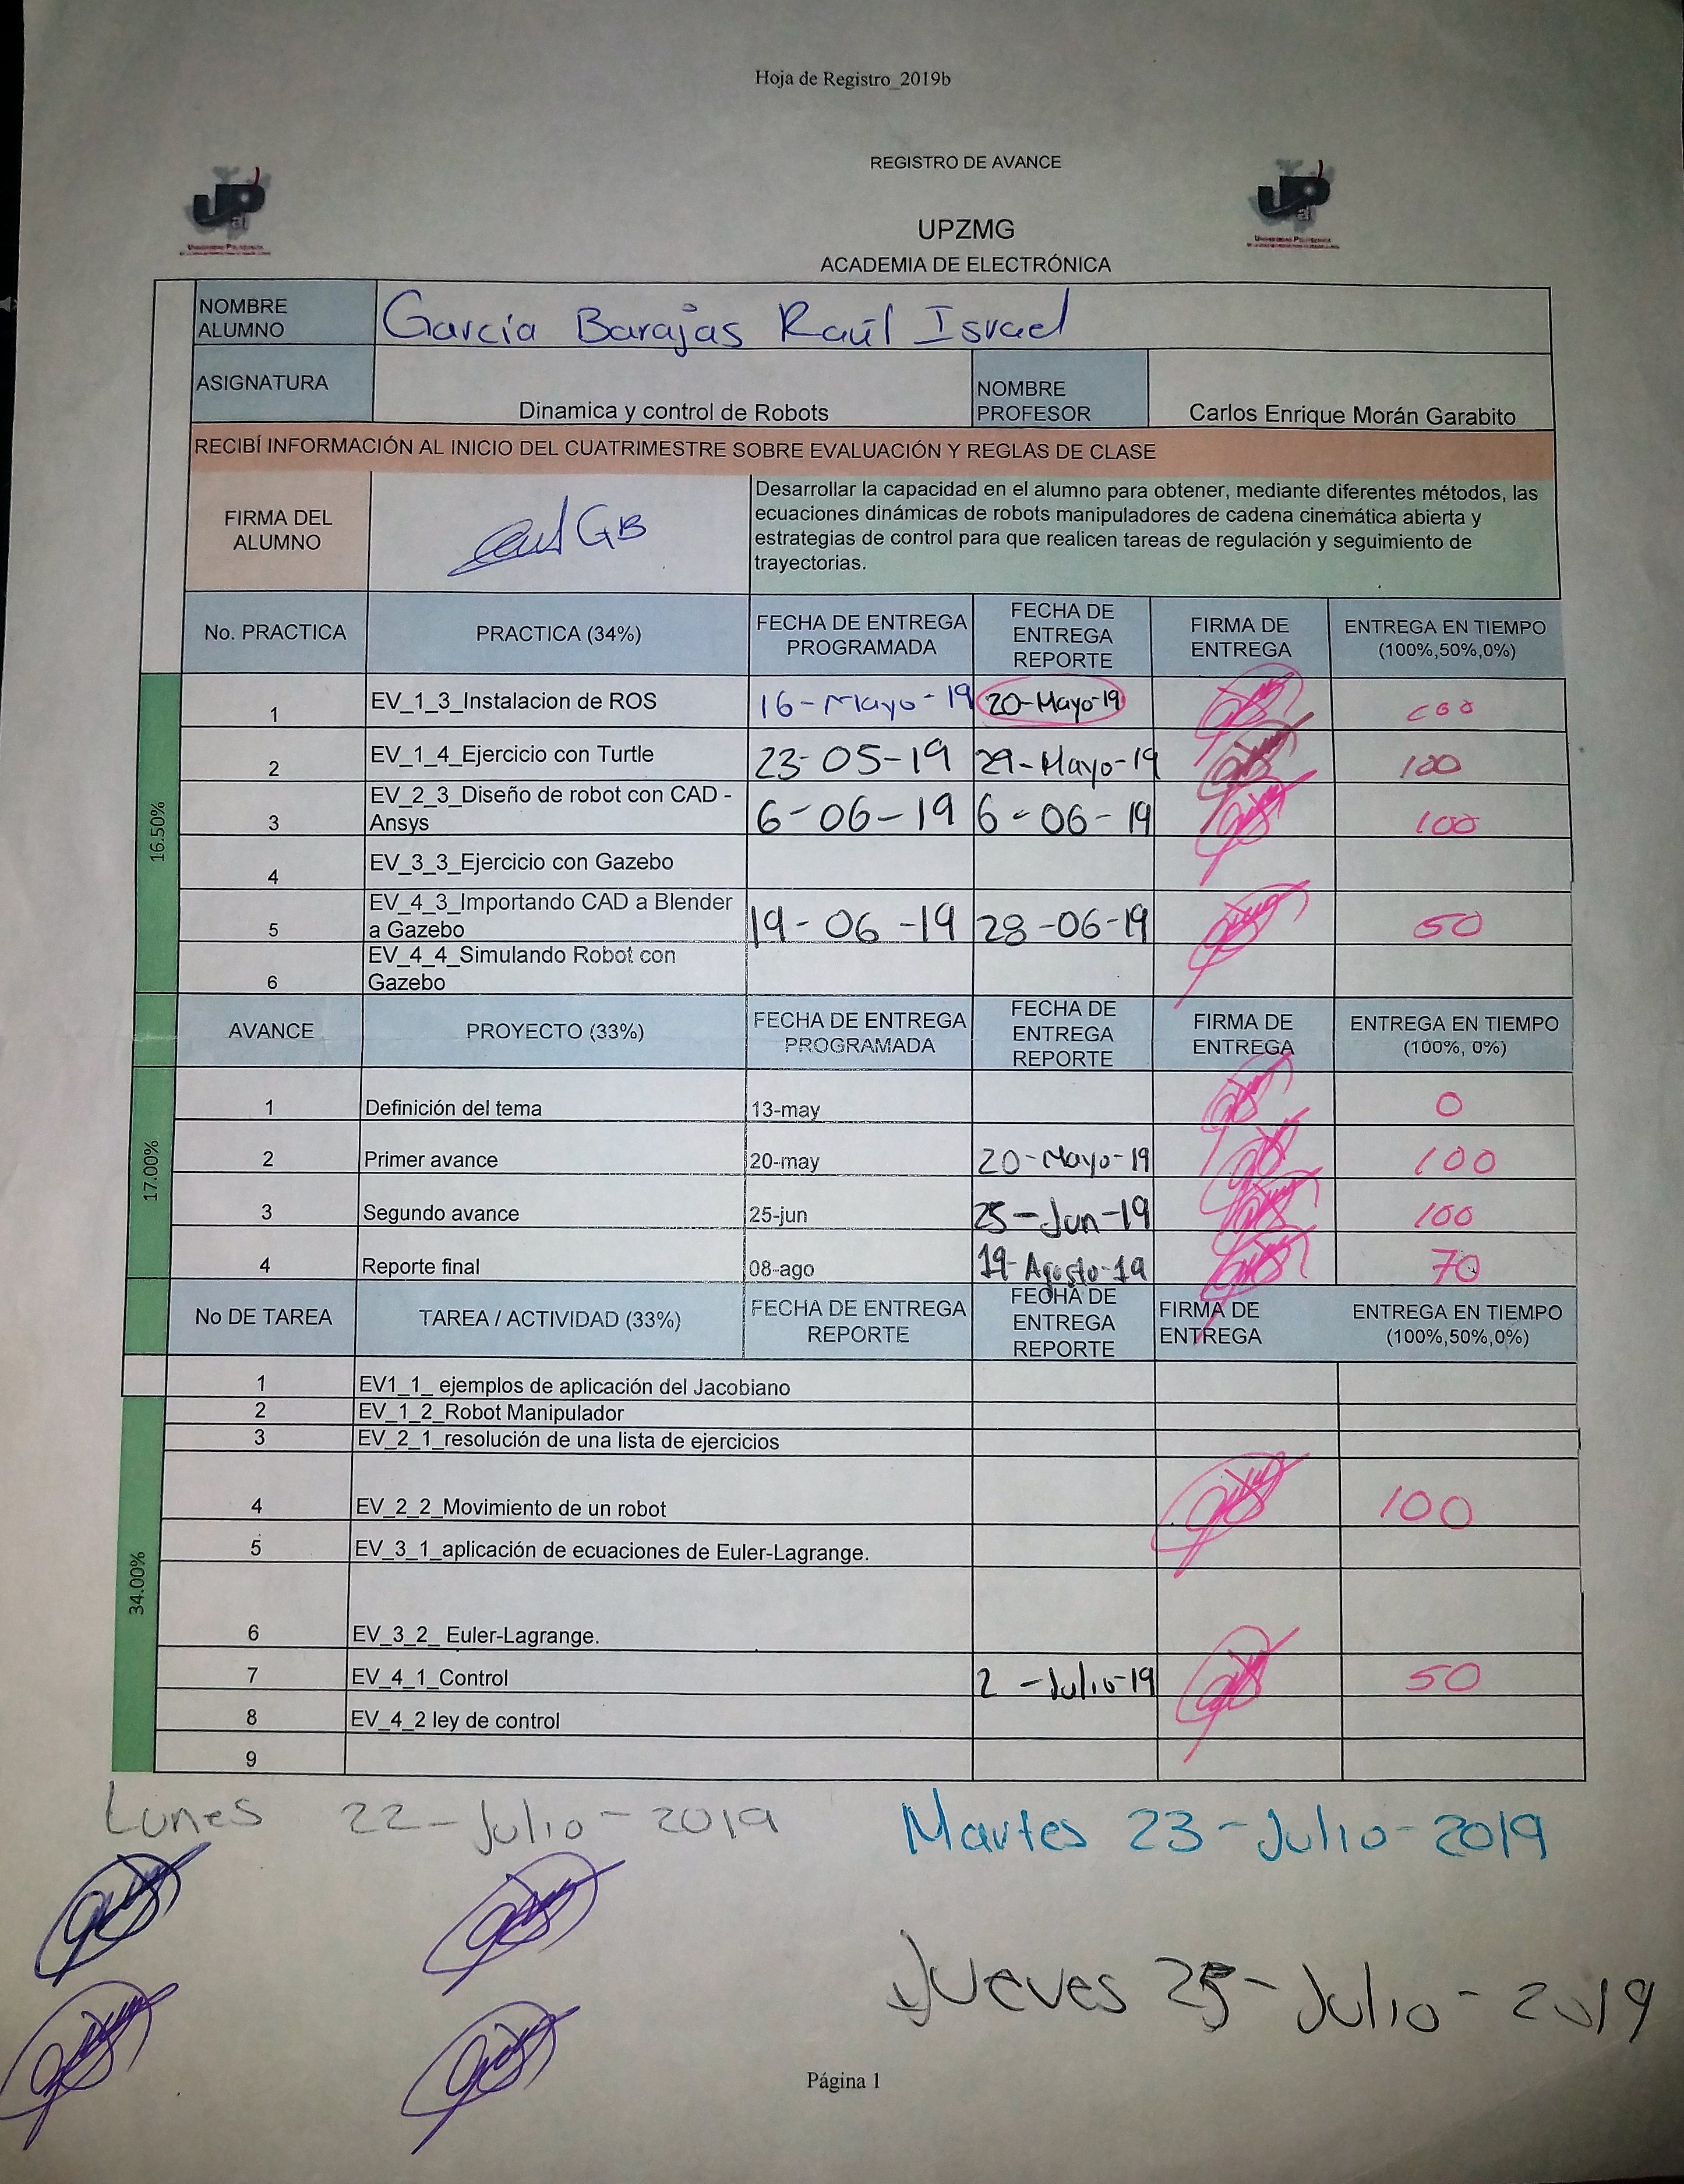 Hoja de Registro_2019b
REGISTRO DE AVANCE
UPZMG
ACADEMIA DE ELECTRÓNICA
NOMBRE ALUMNO García Barajas Raúl Israel
ASIGNATURA Dinamica y control de Robots NOMBRE PROFESOR Carlos Enrique Morán Garabito
RECIBÍ INFORMACIÓN AL INICIO DEL CUATRIMESTRE SOBRE EVALUACIÓN Y REGLAS DE CLASE
FIRMA DEL ALUMNO
Desarrollar la capacidad en el alumno para obtener, mediante diferentes métodos, las
ecuaciones dinámicas de robots manipuladores de cadena cinemática abierta y
estrategias de control para que realicen tareas de regulación y seguimiento de
trayectorias.
No. PRACTICA PRACTICA (34%) FECHA DE ENTREGA PROGRAMADA FECHA DE ENTREGA REPORTE FIRMA DE ENTREGA ENTREGA EN TIEMPO (100%,50%,0%)
16.50%
1 EV_1_3_Instalacion de ROS 16-Mayo-19 20-Mayo-19
2 EV_1_4_Ejercicio con Turtle 23-05-19 29-Mayo-19 100
3 EV_2_3_Diseño de robot con CAD - Ansys 6-06-19 6-06-19 100
4 EV_3_3_Ejercicio con Gazebo
5 EV_4_3_Importando CAD a Blender a Gazebo 19-06-19 28-06-19 50
6 EV_4_4_Simulando Robot con Gazebo
AVANCE PROYECTO (33%) FECHA DE ENTREGA PROGRAMADA FECHA DE ENTREGA REPORTE FIRMA DE ENTREGA ENTREGA EN TIEMPO (100%, 0%)
17.00%
1 Definición del tema 13-may 0
2 Primer avance 20-may 20-Mayo-19 100
3 Segundo avance 25-jun 25-Jun-19 100
4 Reporte final 08-ago 19-Agosto-19 70
No DE TAREA TAREA / ACTIVIDAD (33%) FECHA DE ENTREGA REPORTE FECHA DE ENTREGA REPORTE FIRMA DE ENTREGA ENTREGA EN TIEMPO (100%,50%,0%)
34.00%
1 EV1_1_ ejemplos de aplicación del Jacobiano
2 EV_1_2_Robot Manipulador
3 EV_2_1_resolución de una lista de ejercicios
4 EV_2_2_Movimiento de un robot 100
5 EV_3_1_aplicación de ecuaciones de Euler-Lagrange.
6 EV_3_2_ Euler-Lagrange.
7 EV_4_1_Control 2 -Julio-19 50
8 EV_4_2 ley de control
9
Lunes 22-Julio-2019 Martes 23-Julio-2019
Jueves 25-Julio-2019
Página 1